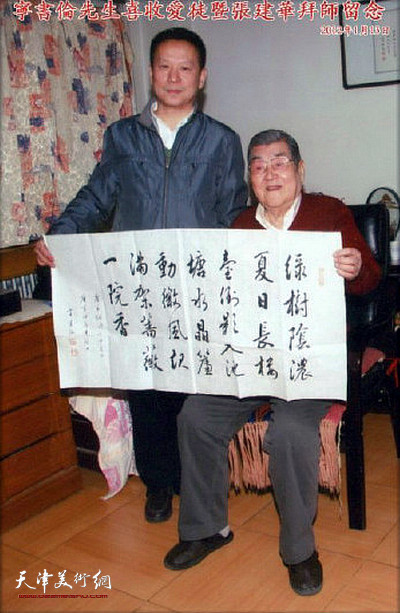 寧書倫先生喜收愛徒暨張建華拜師留念
2012年1月15日
緑樹陰濃
夏日長樓
臺倒影入池
塘水晶簾
動微風起
滿架薔薇
一院香
天津美術網